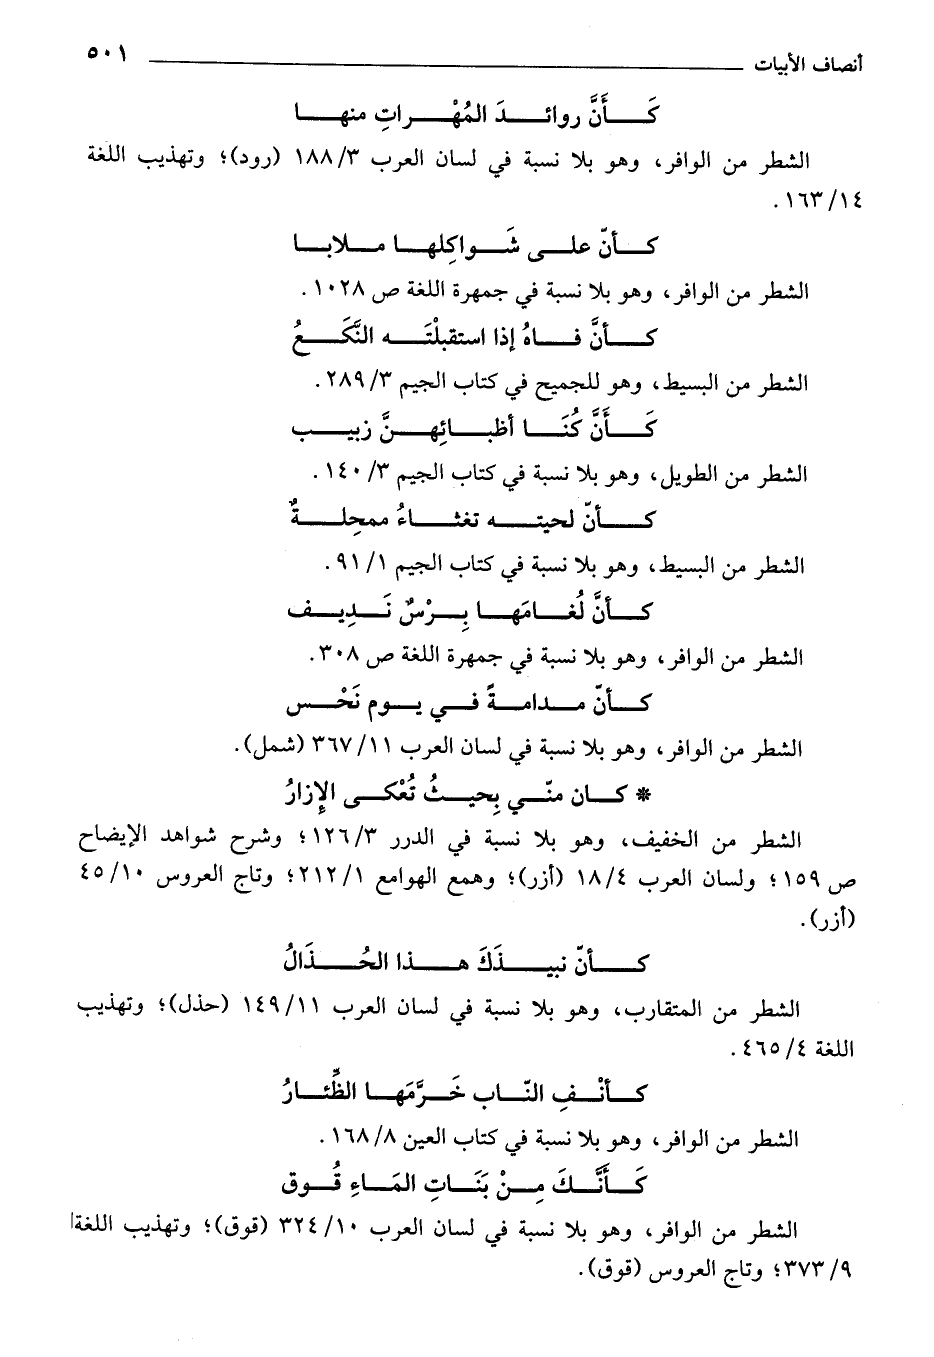 أنصاف الأبيات ٥٠١
كَأَنَّ روائدَ المُهْراتِ منها
الشطر من الوافر، وهو بلا نسبة في لسان العرب ٣/ ١٨٨ (رود)؛ وتهذيب اللغة
١٤/ ١٦٣.
كأنّ على شَواكِلها ملابا
الشطر من الوافر، وهو بلا نسبة في جمهرة اللغة ص ١٠٢٨.
كأنَّ فاهُ إذا استقبلْتَه النَّكَعُ
الشطر من البسيط، وهو للجميح في كتاب الجيم ٣/ ٢٨٩.
كَأَنَّ كُنَا أظبائِهنَّ زبيب
الشطر من الطويل، وهو بلا نسبة في كتاب الجيم ٣/ ١٤٠.
كأنّ لحيته تغثاءُ ممحِلةٌ
الشطر من البسيط، وهو بلا نسبة في كتاب الجيم ١/ ٩١.
كأنَّ لُغامَها بِرْسٌ نَدِيف
الشطر من الوافر، وهو بلا نسبة في جمهرة اللغة ص ٣٠٨.
كأنّ مدامةً في يوم نَحْس
الشطر من الوافر، وهو بلا نسبة في لسان العرب ١١/ ٣٦٧ (شمل).
* كان منّي بِحيثُ تُعْكى الإِزارُ
الشطر من الخفيف، وهو بلا نسبة في الدرر ٣/ ١٢٦؛ وشرح شواهد الإيضاح
ص ١٥٩؛ ولسان العرب ٤/ ١٨ (أزر)؛ وهمع الهوامع ١/ ٢١٢؛ وتاج العروس ١٠/ ٤٥
(أزر).
كأنّ نبيذَكَ هذا الحُذَالُ
الشطر من المتقارب، وهو بلا نسبة في لسان العرب ١١/ ١٤٩ (حذل)؛ وتهذيب
اللغة ٤/ ٤٦٥.
كأنْفِ النّاب خَرَّمَها الظِّئارُ
الشطر من الوافر، وهو بلا نسبة في كتاب العين ٨/ ١٦٨.
كَأَنَّكَ مِنْ بَنَاتِ المَاءِ قُوق
الشطر من الوافر، وهو بلا نسبة في لسان العرب ١٠/ ٣٢٤ (قوق)؛ وتهذيب اللغة
٩/ ٣٧٣؛ وتاج العروس (قوق).